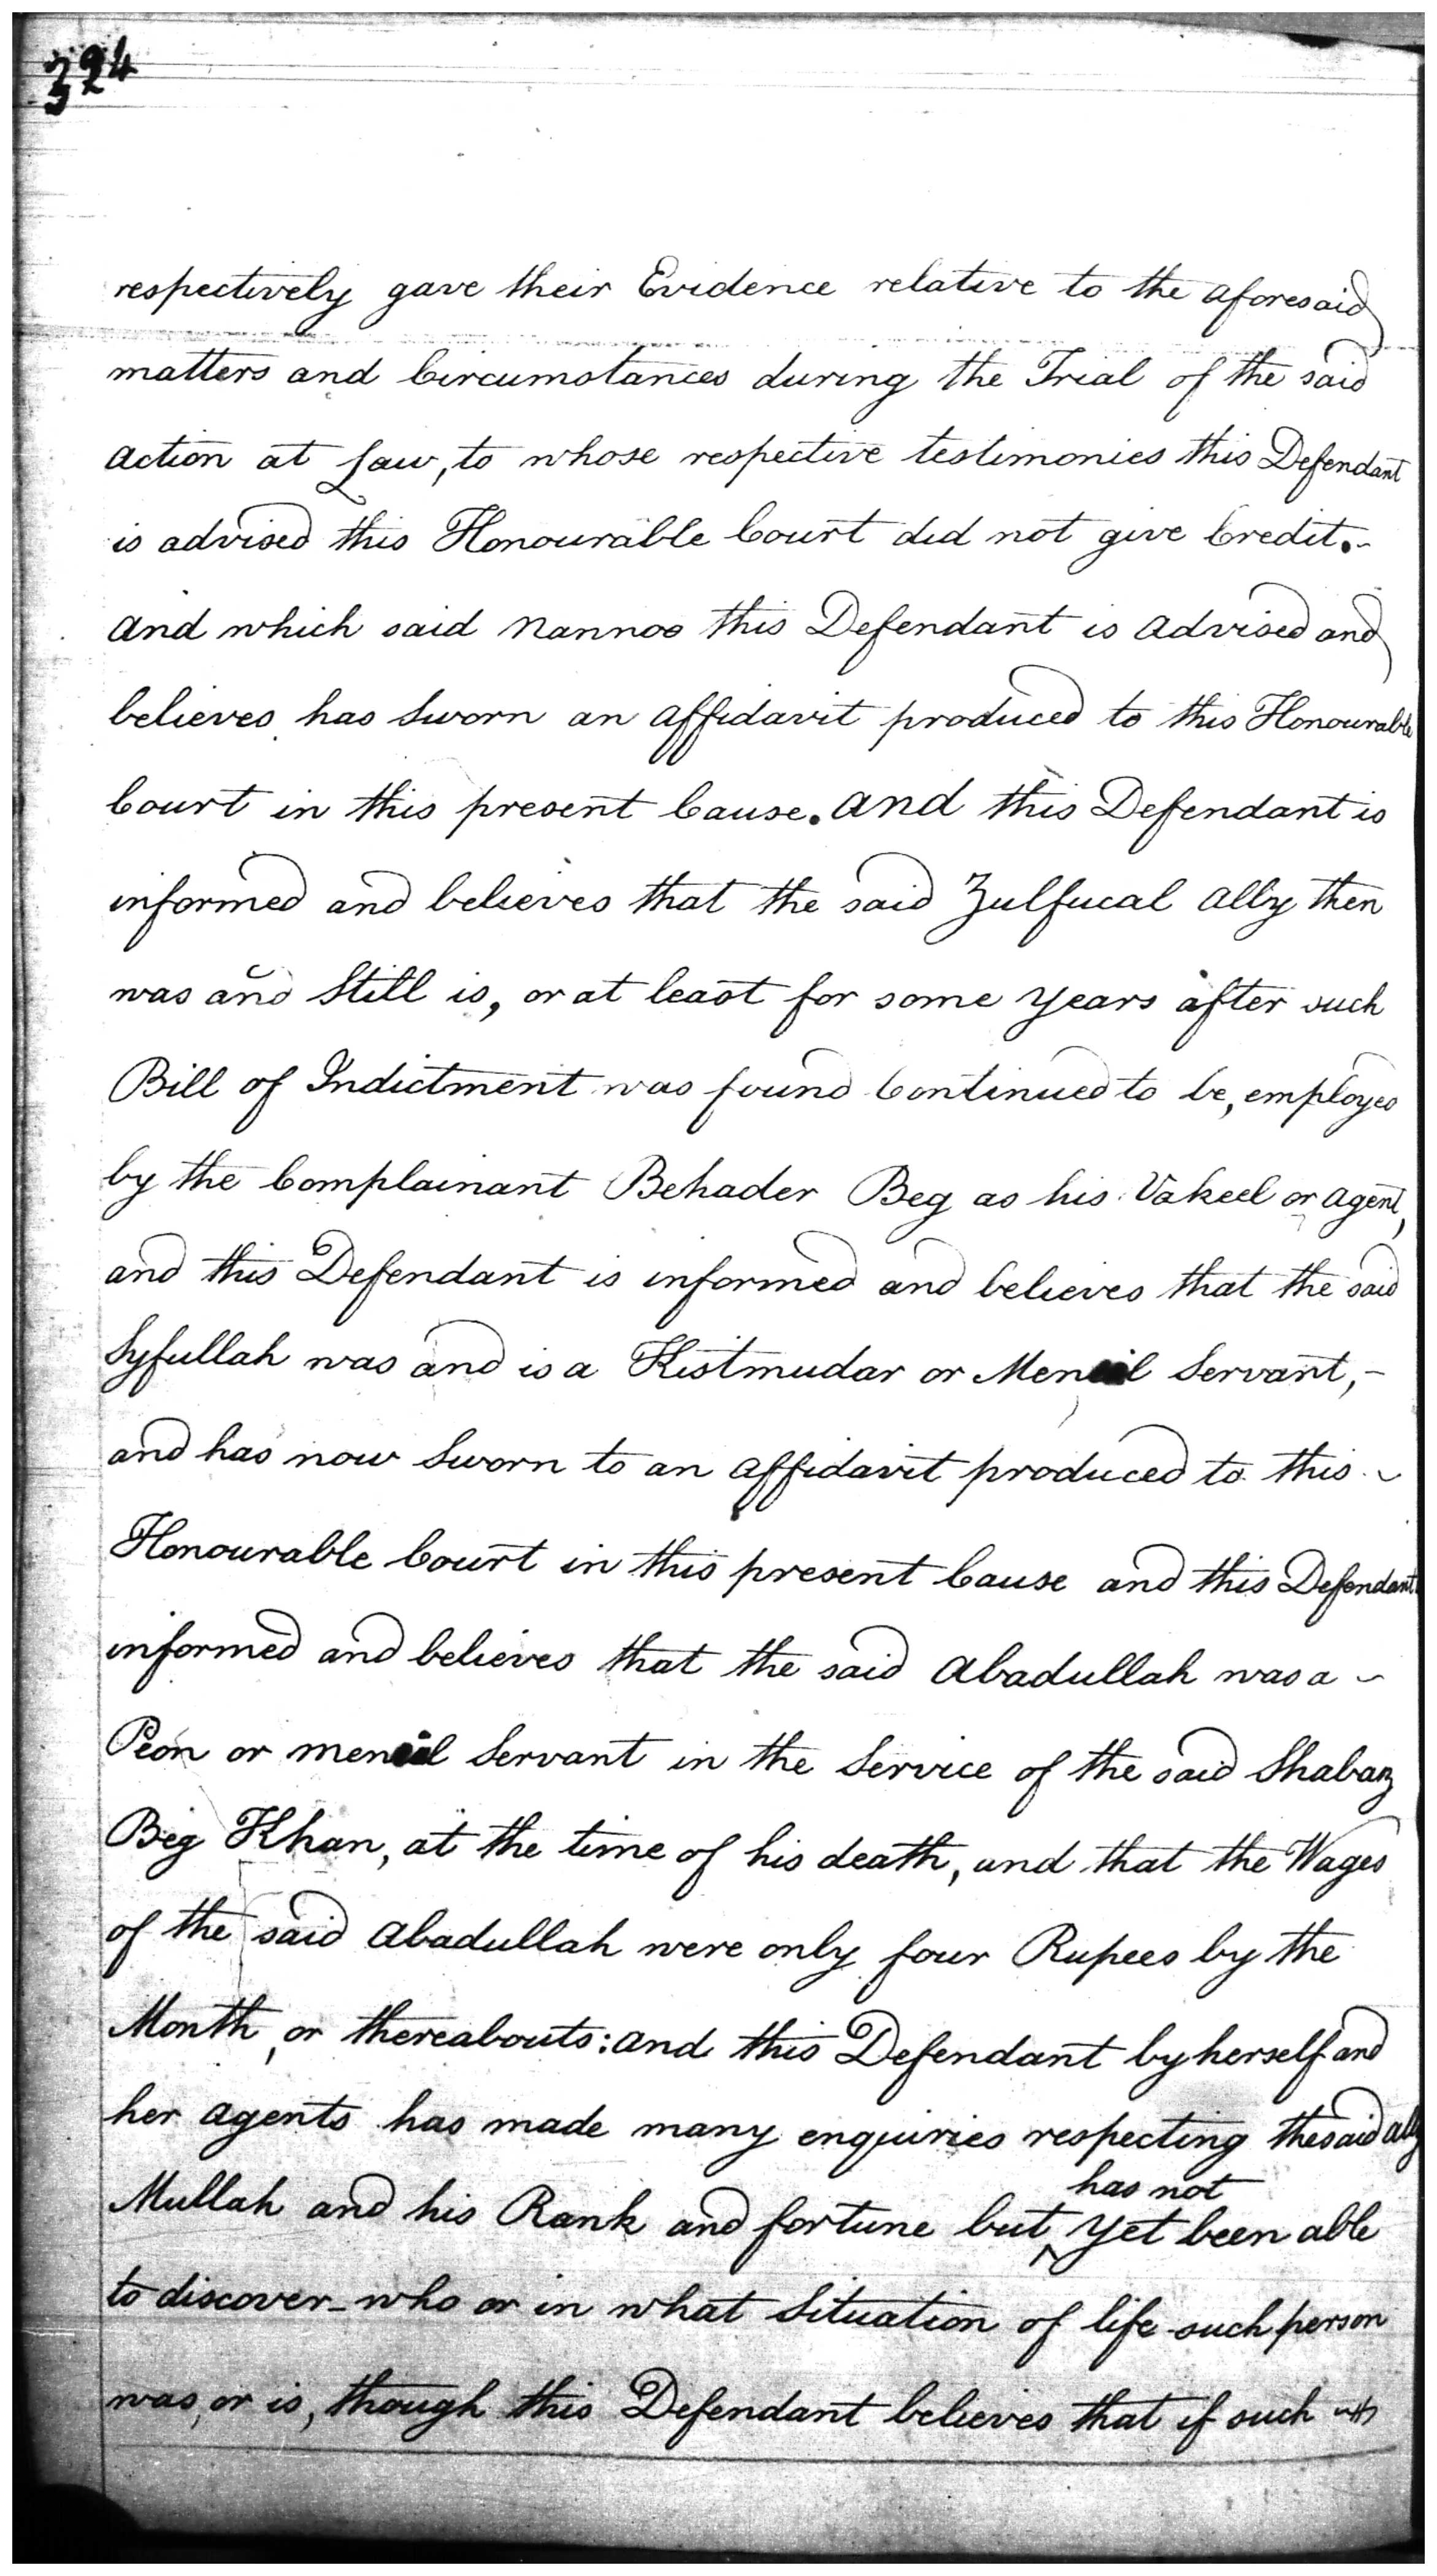 324
respectively gave their Evidence relative to the aforesaid
matters and Circumstances during the Trial of the said
action at Law, to whose respective testimonies this Defendant
is advised this Honourable Court did not give Credit.-
and which said Nannoo this Defendant is advised and
believes has Sworn an affidavit produced to this Honourable
Court in this present Cause. and this Defendant is
informed and believes that the said Zulfucal Ally then
was and Still is, or at least for some years after such
Bill of Indictment was found Continued to be, employed
by the Complainant Behader Beg as his Vakeel or agent,
and this Defendant is informed and believes that the said
Syfullah was and is a Kistmudar or Menial Servant,-
and has now Sworn to an affidavit produced to this -
Honourable Court in this present Cause and this Defendant
informed and believes that the said Abadullah was a -
Peon or menial Servant in the Service of the said Shabaz
Beg Khan, at the time of his death, and that the Wages
of the said Abadullah were only four Rupees by the
Month, or thereabouts: and this Defendant by herself and
her agents has made many enquiries respecting the said Ally
has not
Mullah and his Rank and fortune but ^ yet been able
to discover_ who or in what Situation of life such person
was, or is, though this Defendant believes that if such